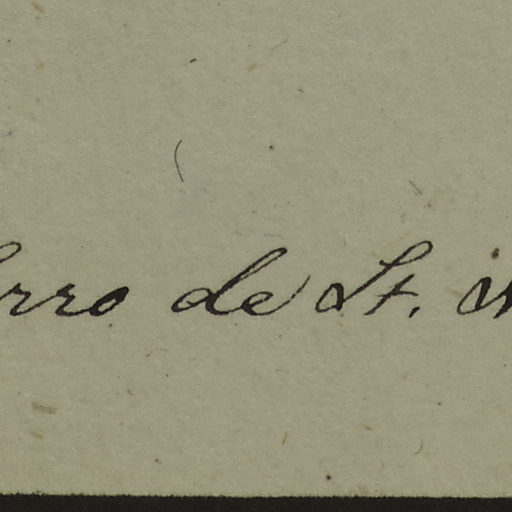 erro de St.